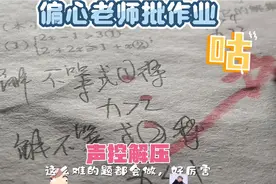 偏心老师批作业
咕
解不等式①得
x>2
解不等式②得
声控解压
这么难的题都会做，好厉害